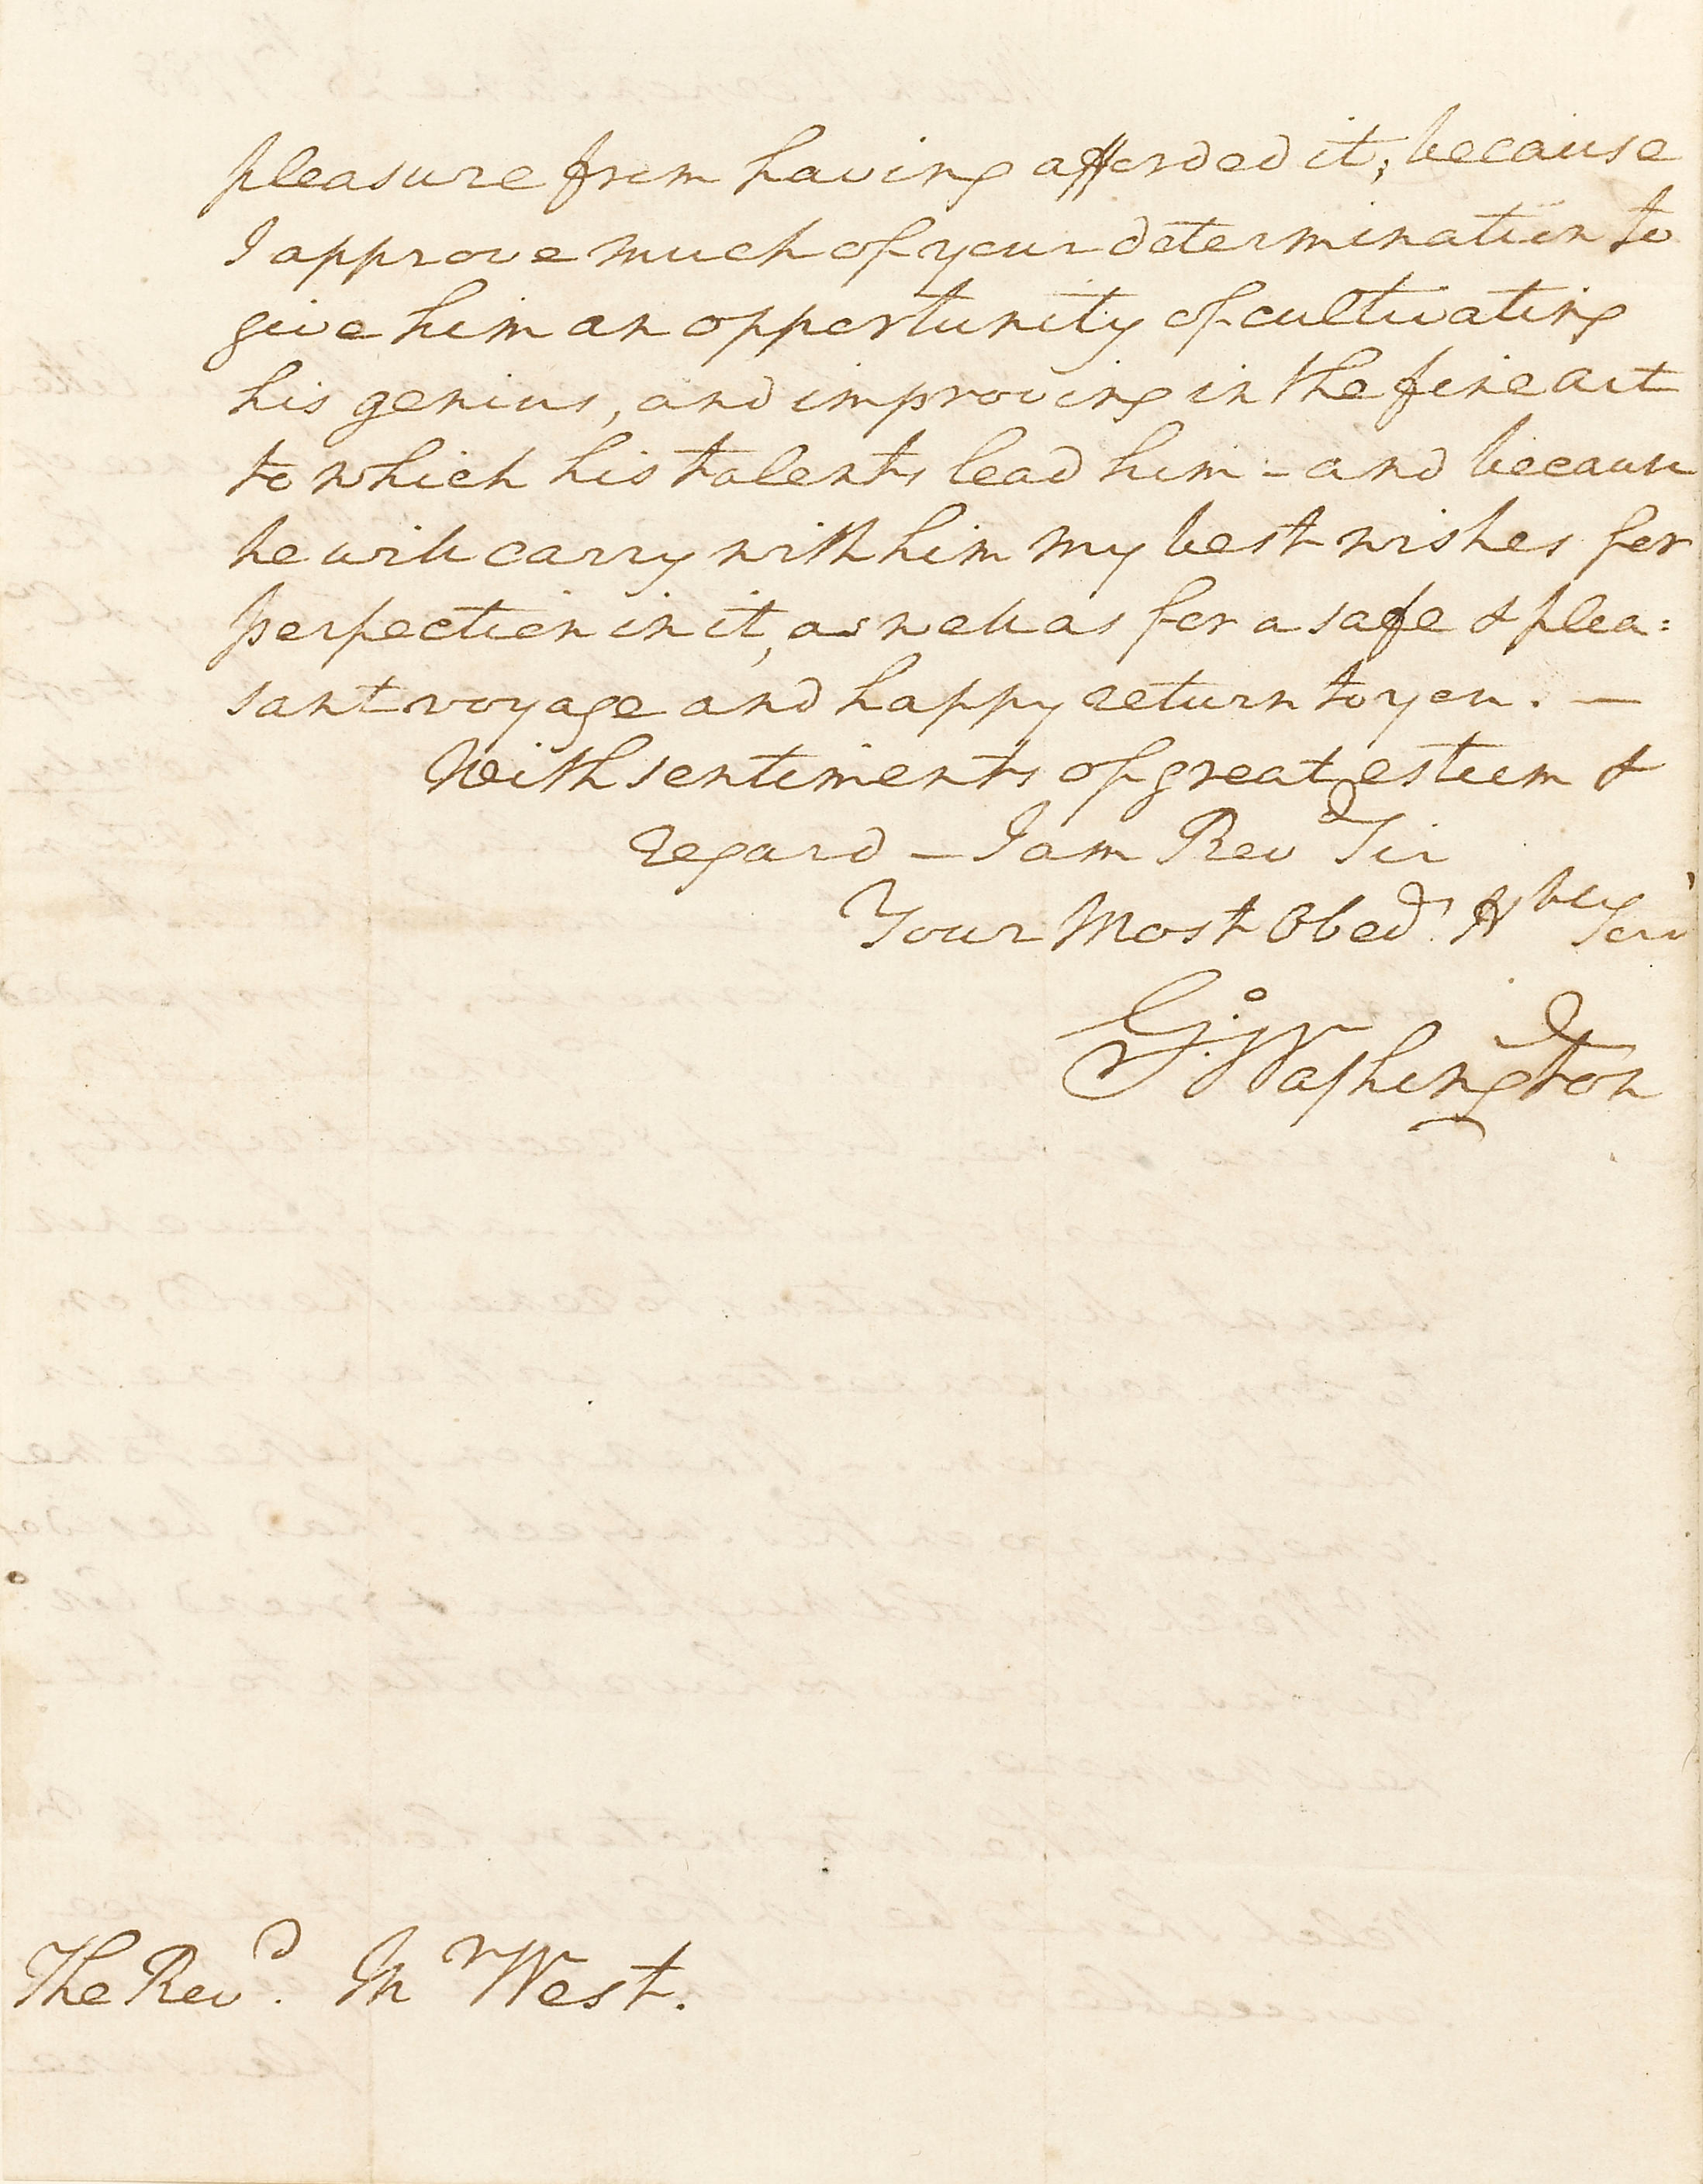 pleasure from having afforded it; because
I approve much of your determination to
give him an opportunity of cultivating
his genius, and improving in the fine art
to which his talents lead him – and because
he will carry with him my best wishes for
perfection in it, as well as for a safe & plea:
sant voyage and happy return to you. —
With sentiments of great esteem &
regard – I am Revd Sir
Your Most Obedt Hble Servt
Go: Washington
The Revd. Mr West.